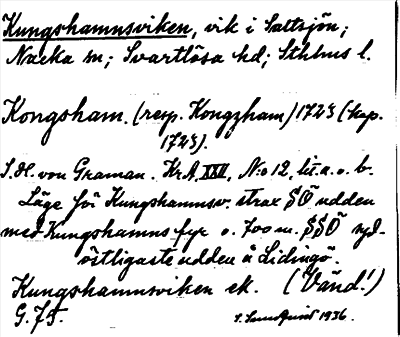 Kungshamnsviken, vik i Saltsjön;
Nacka sn; Svartlösa hd; Sthlms l.
Kongsham. (resp. Kongzham) 1723 (kop.
1723).
S.H. von Graman. Kr.A. XXI, N:o 12, lit. a. o. b.
Läge för Kungshamnsv. strax SÖ udden
med Kungshamns fyr o. 700 m. SSÖ syd-
östligaste udden å Lidingö.
Kungshamnsviken ek. (Vänd!)
G.J.F. S. Sundquist 1936.